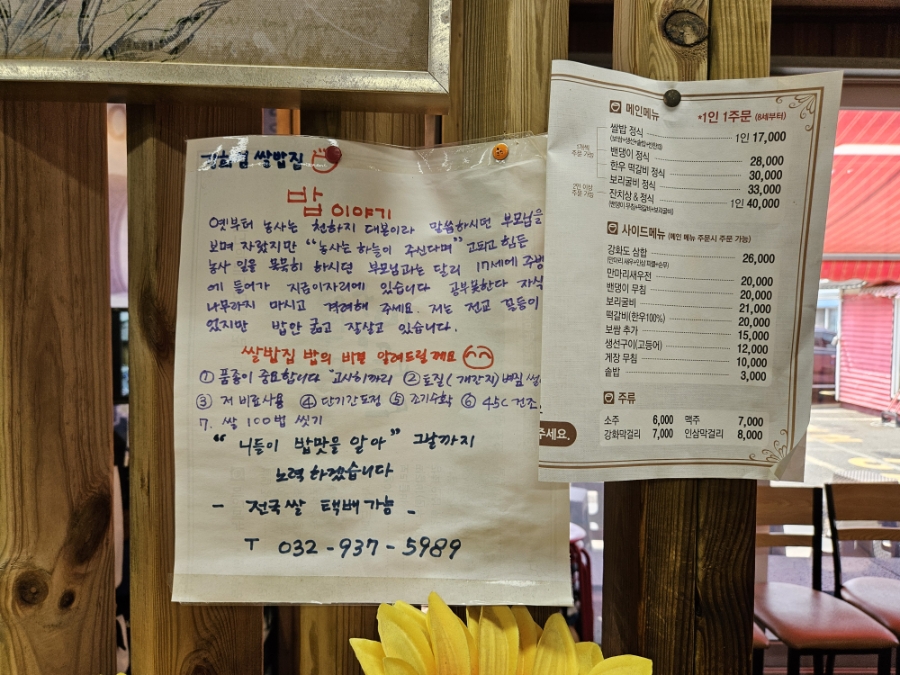 쌀밥집
밥 이야기
옛부터 농사는 천하지 대본이라 말씀하시던 부모님을
보며 자랐지만 "농사는 하늘이 주신다며" 고되고 힘든
농사 일을 묵묵히 하시던 부모님과는 달리 17세에 주방
에 들어가 지금이자리에 있습니다 공부못한다 자식
나무라지 마시고 격려해 주세요. 저는 전교 꼴등이
었지만 밥안 굶고 잘살고 있습니다.
쌀밥집 밥의 비밀 알려드릴께요
① 품종이 중요합니다 "고시히까리 ② 토질( 개간지)
③ 저 비료사용 ④ 단기간도정 ⑤ 조기수확 ⑥ 45C 건조
7. 쌀 100번 씻기
" 니들이 밥맛을 알아 " 그날까지
노력 하겠습니다
- 전국쌀 택배가능 -
T 032-937-5989
메인메뉴 *1인 1주문 (8세부터)
쌀밥 정식 1인 17,000
밴댕이 정식 28,000
한우 떡갈비 정식 30,000
보리굴비 정식 33,000
잔치상 & 정식 1인 40,000
(밴댕이 무침+떡갈비+보리굴비)
사이드메뉴 (메인 메뉴 주문시 주문 가능)
강화도 삼합 26,000
만마리새우전 20,000
밴댕이 무침 20,000
보리굴비 21,000
떡갈비(한우100%) 20,000
보쌈 추가 15,000
생선구이(고등어) 12,000
게장 무침 10,000
솥밥 3,000
주류
소주 6,000 맥주 7,000
강화막걸리 7,000 인삼막걸리 8,000
주세요.